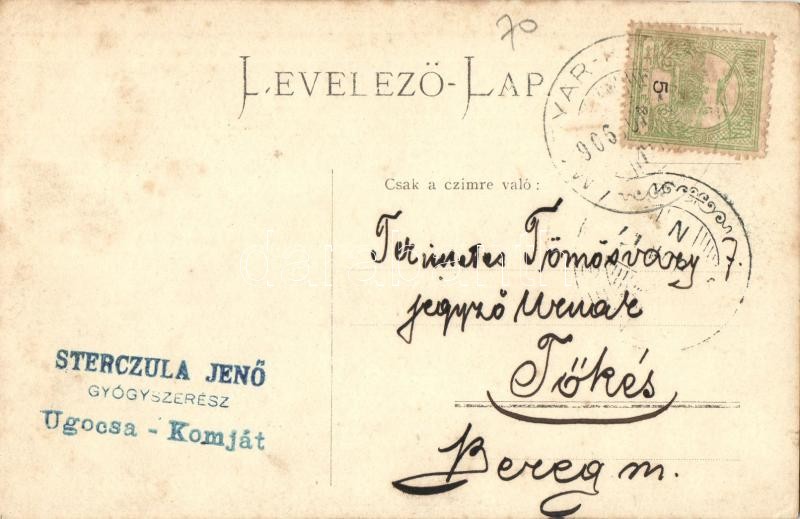 70
LEVELEZŐ-LAP
5
906
Csak a czimre való:
Tömösváry J.
jegyző Urnak
Tőkés
Bereg m.
STERCZULA JENŐ
GYÓGYSZERÉSZ
Ugocsa - Komját